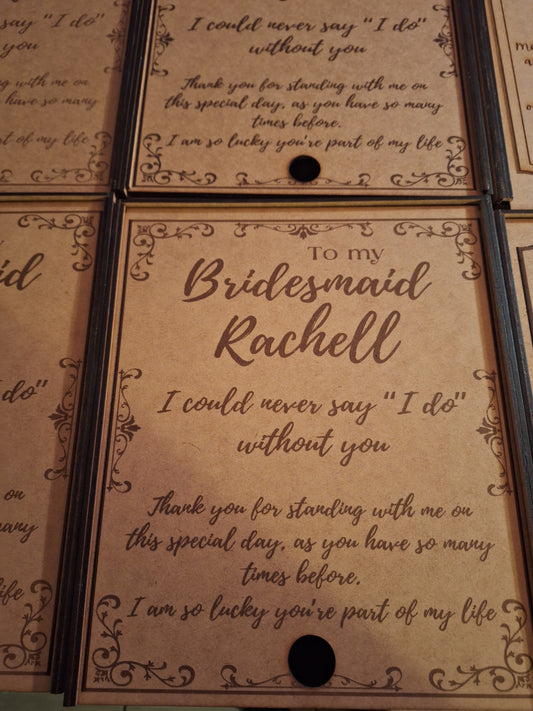 say "I do"
you
with me on
have so many
part of my life
I could never say "I do"
without you
Thank you for standing with me on
this special day, as you have so many
times before.
I am so lucky you're part of my life
do"
on
many
life
To my
Bridesmaid
Rachell
I could never say "I do"
without you
Thank you for standing with me on
this special day, as you have so many
times before.
I am so lucky you're part of my life